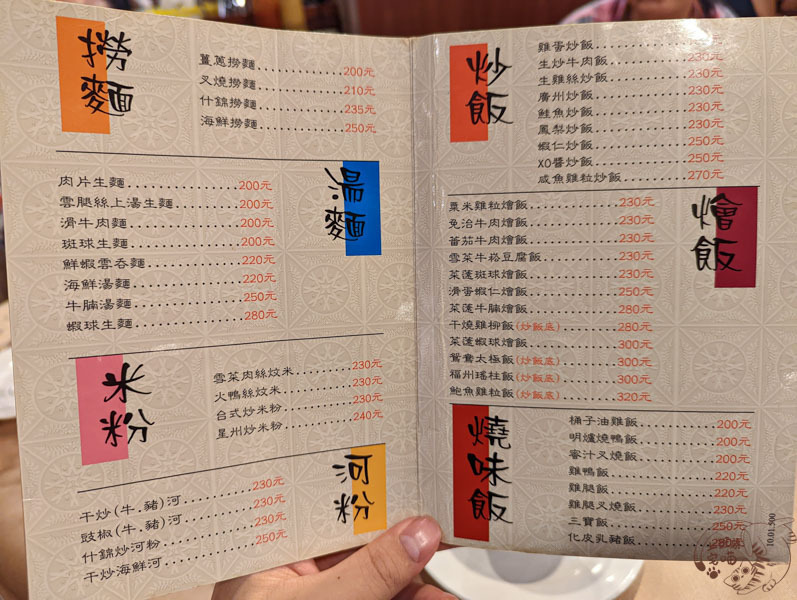 撈麵
薑蔥撈麵 200元
叉燒撈麵 210元
什錦撈麵 235元
海鮮撈麵 250元
湯麵
肉片生麵 200元
雲腿絲上湯生麵 200元
滑牛肉麵 200元
斑球生麵 200元
鮮蝦雲吞麵 220元
海鮮湯麵 220元
牛腩湯麵 250元
蝦球生麵 280元
米粉
雪菜肉絲炆米 230元
火鴨絲炆米 230元
台式炒米粉 230元
星州炒米粉 240元
河粉
干炒(牛.豬)河 230元
豉椒(牛.豬)河 230元
什錦炒河粉 230元
干炒海鮮河 250元
炒飯
雞蛋炒飯
生炒牛肉飯 230元
生雞絲炒飯 230元
廣州炒飯 230元
鮭魚炒飯 230元
鳳梨炒飯 230元
蝦仁炒飯 250元
XO醬炒飯 250元
咸魚雞粒炒飯 270元
燴飯
粟米雞粒燴飯 230元
免治牛肉燴飯 230元
蕃茄牛肉燴飯 230元
雪菜牛崧豆腐飯 230元
菜薳斑球燴飯 230元
滑蛋蝦仁燴飯 250元
菜薳牛腩燴飯 280元
干燒雞柳飯(炒飯底) 280元
菜薳蝦球燴飯 300元
鴛鴦太極飯(炒飯底) 300元
福州瑤柱飯(炒飯底) 300元
鮑魚雞粒飯(炒飯底) 320元
燒味飯
桶子油雞飯 200元
明爐燒鴨飯 200元
蜜汁叉燒飯 200元
雞鴨飯 220元
雞腿飯 220元
雞腿叉燒飯 230元
三寶飯 250元
化皮乳豬飯 280元
10.01.500